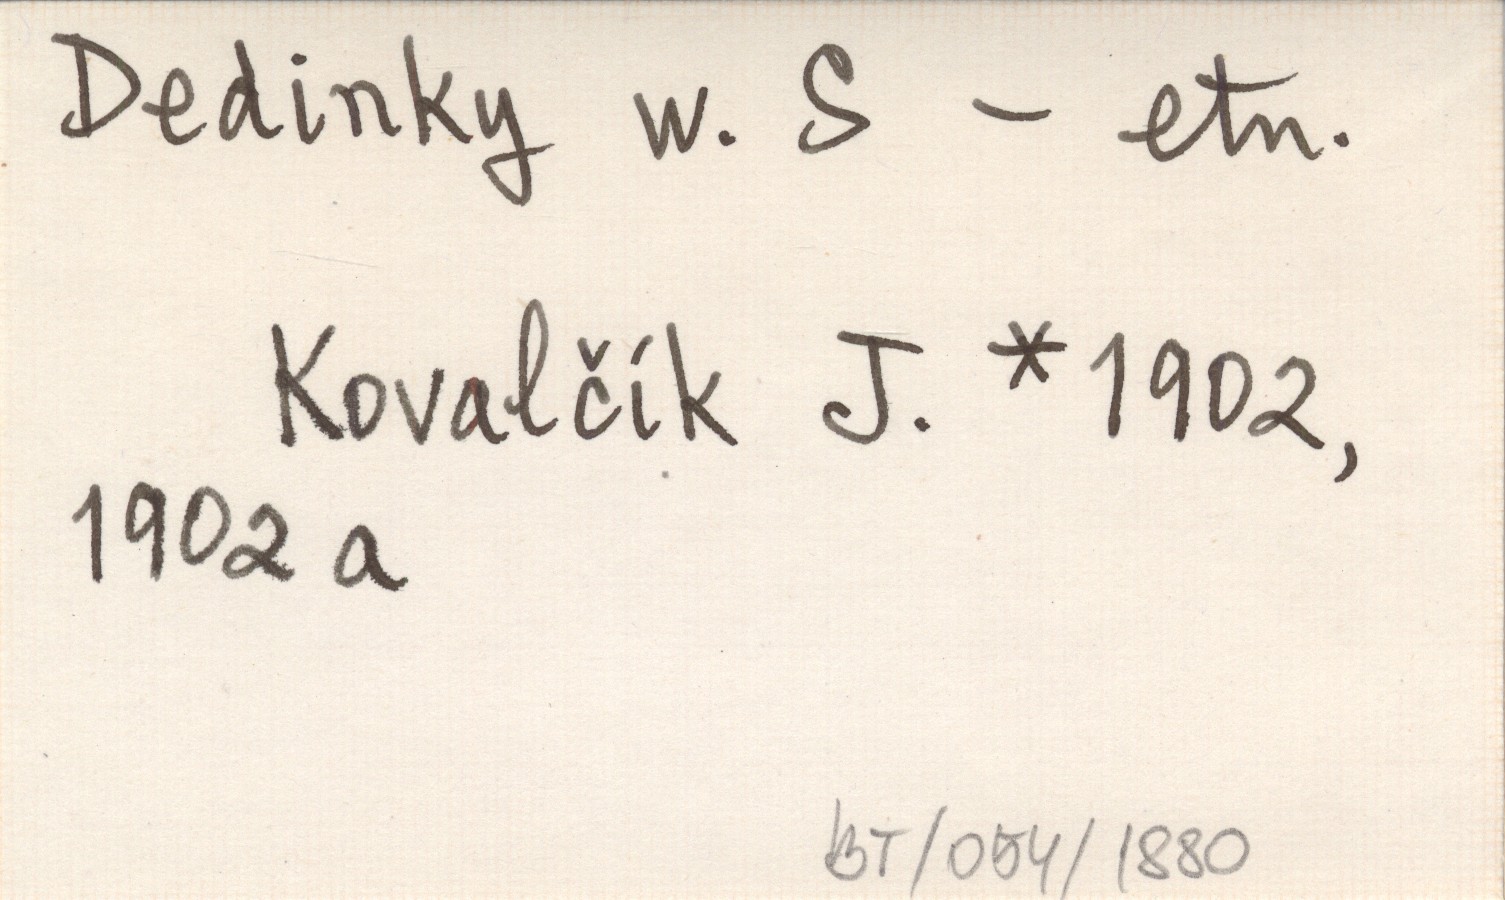 Dedinky w. S - etn.
Kovalčík J. *1902,
1902 a
BT/054/1880